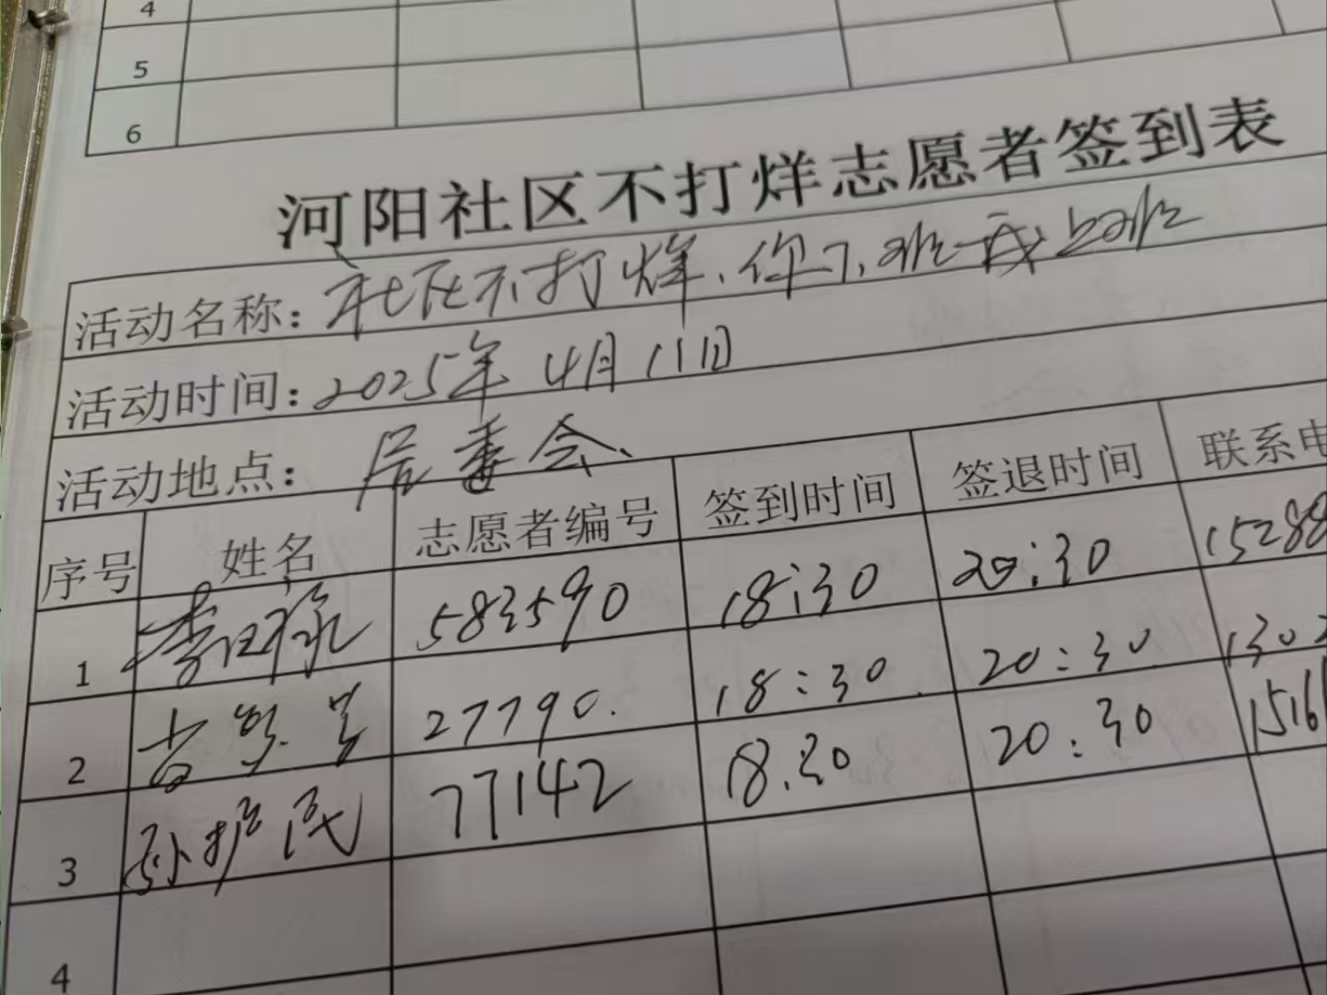 4
5
6
河阳社区不打烊志愿者签到表
活动名称：社区不打烊、你下班我上班
活动时间：2025年4月11日
活动地点：居委会、
序号 姓名 志愿者编号 签到时间 签退时间 联系电
1 583590 18:30 20:30 15288
2 27790. 18:30 20:30 1302
3 孙护民 77142 18:30 20:30 1516
4